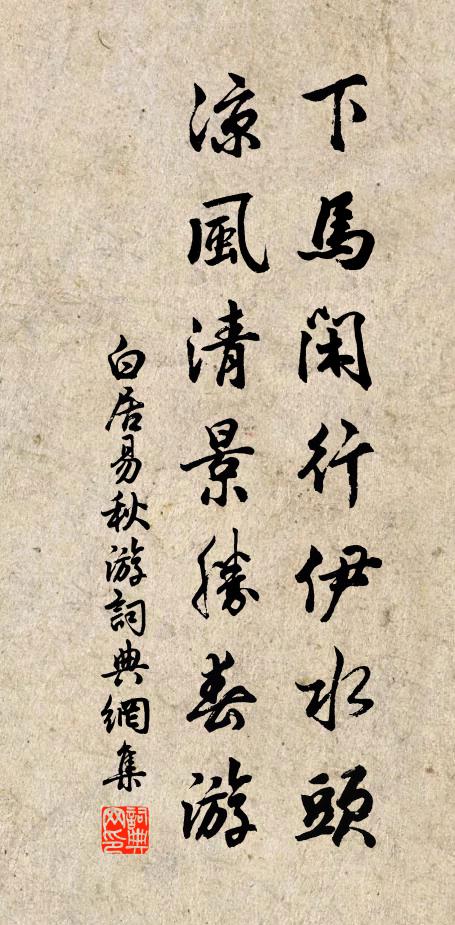 下馬閑行伊水頭
凉風清景勝春游
白居易秋游詞典網集
詞典网印